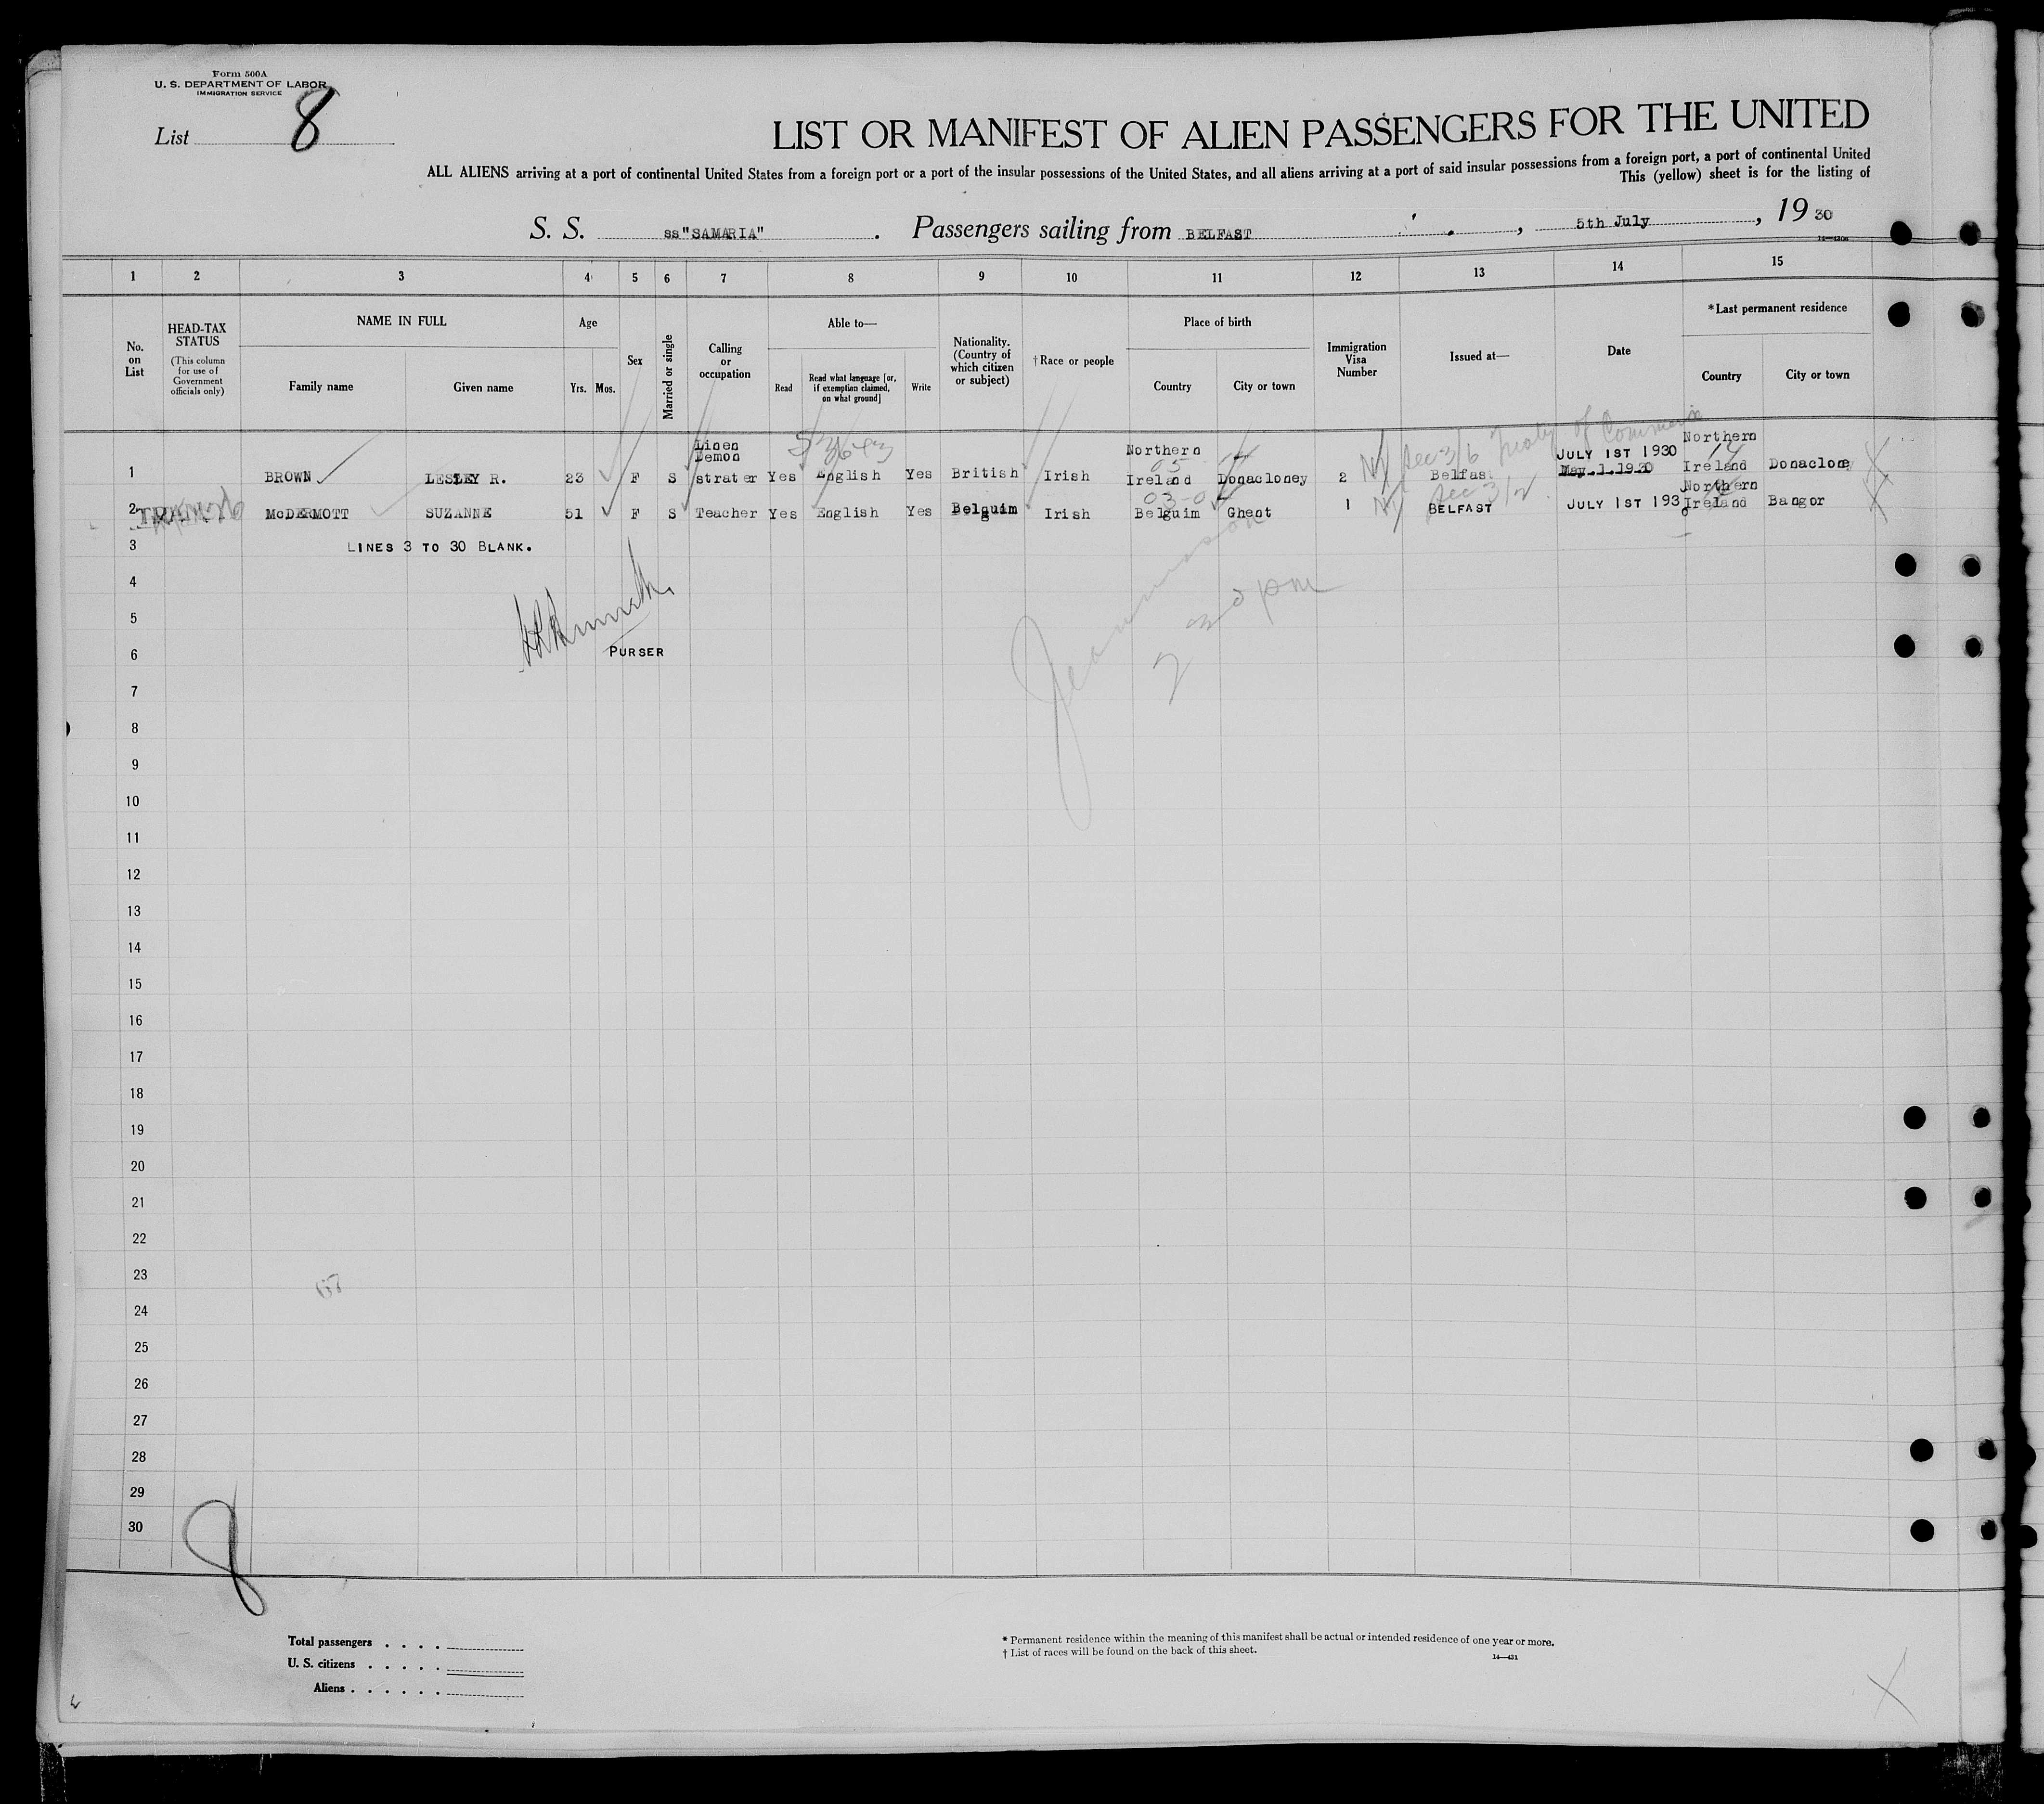 Form 500A
U. S. DEPARTMENT OF LABOR
IMMIGRATION SERVICE
List 8
LIST OR MANIFEST OF ALIEN PASSENGERS FOR THE UNITED
ALL ALIENS arriving at a port of continental United States from a foreign port or a port of the insular possessions of the United States, and all aliens arriving at a port of said insular possessions from a foreign port, a port of continental United
This (yellow) sheet is for the listing of
S. S. ss"SAMARIA" . Passengers sailing from BELFAST , 5th July , 19 30
1 2 3 4 5 6 7 8 9 10 11 12 13 14 15
No. on List
HEAD-TAX STATUS
(This column for use of Government officials only)
NAME IN FULL
Family name Given name
Age
Yrs. Mos.
Sex
Married or single
Calling or occupation
Able to—
Read
Read what language [or, if exemption claimed, on what ground]
Write
Nationality. (Country of which citizen or subject)
†Race or people
Place of birth
Country City or town
Immigration Visa Number
Issued at—
Date
*Last permanent residence
Country City or town
1 BROWN LESLEY R. 23 F S Linen Demon strater Yes English Yes British Irish Northern Ireland Donacloney 2 Belfast JULY 1ST 1930 May 1 1930 Northern Ireland Donaclone
Sec 3/6 Treaty of Commerce
2 McDERMOTT SUZANNE 51 F S Teacher Yes English Yes Belguim Irish Belguim Ghent 1 BELFAST JULY 1ST 1930 Northern Ireland Bangor
Sec 3/2
3 LINES 3 TO 30 BLANK.
4
5
6 PURSER
7
8
9
10
11
12
13
14
15
16
17
18
19
20
21
22
23
24
25
26
27
28
29
30
8
Total passengers . . . .
U. S. citizens . . . . .
Aliens . . . . . .
* Permanent residence within the meaning of this manifest shall be actual or intended residence of one year or more.
† List of races will be found on the back of this sheet.
14—431